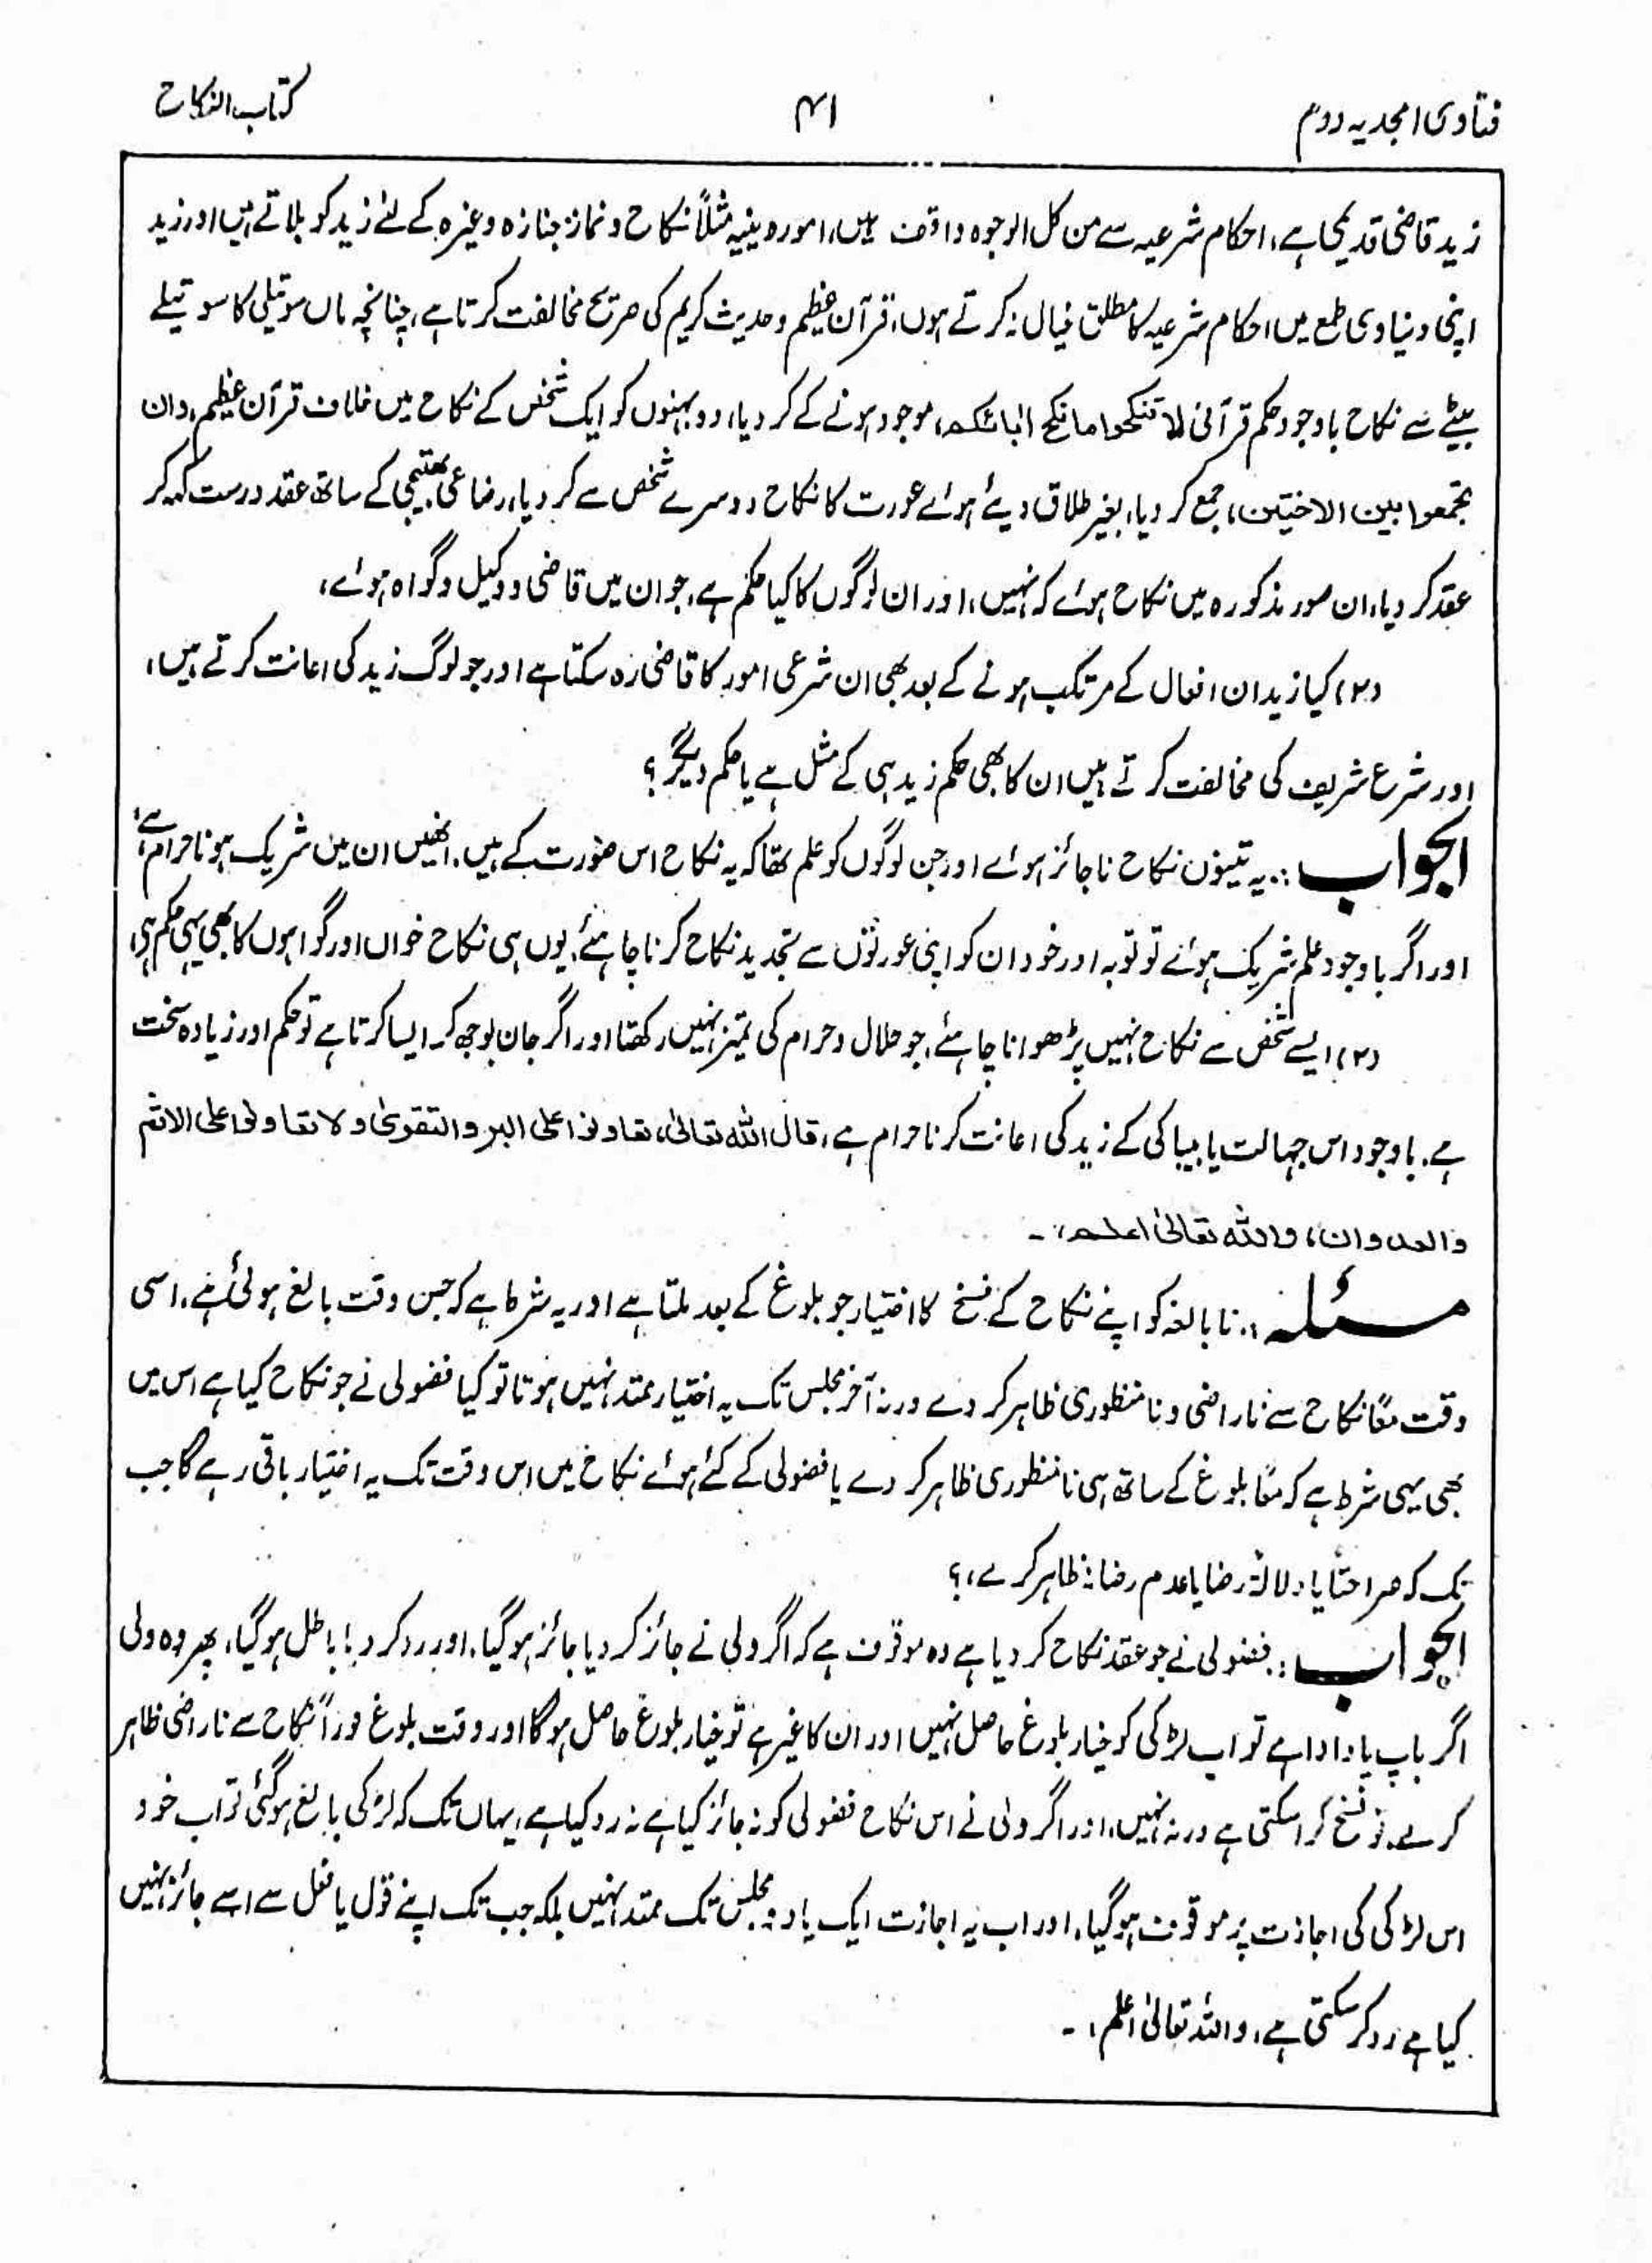 فتاوی امجدیہ دوم
۴۱
کتاب النکاح
زید قاضی قدیمی ہے، احکام شرعیہ سے من کل الوجوہ واقف ہیں، امور دینیہ مثلاً نکاح و نماز جنازہ وغیرہ کے لئے زید کو بلاتے ہیں اور زید
اپنی دنیاوی طمع میں احکام شرعیہ کا مطلق خیال نہ کرتے ہوں، قرآن عظیم و حدیث کریم کی صریح مخالفت کرتا ہے، چنانچہ ماں سوتیلی کا سوتیلے
بیٹے سے نکاح باوجود حکم قرآنی لا تنکحوا ما نکح اٰبائکم، موجود ہونے کے کر دیا، دو بہنوں کو ایک شخص کے نکاح میں خلاف قرآن عظیم، وان
تجمعوا بین الاختین، جمع کر دیا، بغیر طلاق دیئے ہوئے عورت کا نکاح دوسرے شخص سے کر دیا، رضاعی بھتیجی کے ساتھ عقد درست کہہ کر
عقد کر دیا، ان صور مذکورہ میں نکاح ہوئے کہ نہیں، اور ان لوگوں کا کیا حکم ہے، جو ان میں قاضی و وکیل و گواہ ہوئے،
(۲) کیا زید ان افعال کے مرتکب ہونے کے بعد بھی ان شرعی امور کا قاضی رہ سکتا ہے اور جو لوگ زید کی اعانت کرتے ہیں،
اور شرع شریف کی مخالفت کرتے ہیں ان کا بھی حکم زید ہی کے مثل ہے یا حکم دیگر؟
الجواب :: یہ تینوں نکاح ناجائز ہوئے اور جن لوگوں کو علم تھا کہ یہ نکاح اس صورت کے ہیں۔ انھیں ان میں شریک ہونا حرام ہے،
اور اگر باوجود علم شریک ہوئے تو توبہ اور خود ان کو اپنی عورتوں سے تجدید نکاح کرنا چاہئے، یوں ہی نکاح خواں اور گواہوں کا بھی یہی حکم ہے،
(۲) ایسے شخص سے نکاح نہیں پڑھوانا چاہئے، جو حلال و حرام کی تمیز نہیں رکھتا اور اگر جان بوجھ کر ایسا کرتا ہے تو حکم اور زیادہ سخت
ہے۔ باوجود اس جہالت یا بیباکی کے زید کی اعانت کرنا حرام ہے، قال اللہ تعالیٰ، تعاونوا علی البر والتقویٰ ولا تعاونوا علی الاثم
والعدوان، واللہ تعالیٰ اعلم، ۔
مسئلہ :: نابالغہ کو اپنے نکاح کے فسخ کا اختیار جو بلوغ کے بعد ملتا ہے اور یہ شرط ہے کہ جس وقت بالغ ہوئی ہے، اسی
وقت معًا نکاح سے ناراضی و نامنظوری ظاہر کر دے ورنہ آخر مجلس تک یہ اختیار ممتد نہیں ہوتا تو کیا فضولی نے جو نکاح کیا ہے اس میں
بھی یہی شرط ہے کہ معًا بلوغ کے ساتھ ہی نامنظوری ظاہر کر دے یا فضولی کے کئے ہوئے نکاح میں اس وقت تک یہ اختیار باقی رہے گا جب
تک کہ صراحتًا یا دلالۃً رضا یا عدم رضا نہ ظاہر کرے،؟
الجواب :: فضولی نے جو عقد نکاح کر دیا ہے وہ موقوف ہے کہ اگر ولی نے جائز کر دیا جائز ہو گیا، اور رد کر دیا باطل ہو گیا، پھر وہ ولی
اگر باپ یا دادا ہے تو اب لڑکی کو خیار بلوغ حاصل نہیں اور ان کا غیر ہے تو خیار بلوغ حاصل ہوگا اور وقت بلوغ فوراً نکاح سے ناراضی ظاہر
کرے۔ تو فسخ کرا سکتی ہے ورنہ نہیں، اور اگر ولی نے اس نکاح فضولی کو نہ جائز کیا ہے نہ رد کیا ہے، یہاں تک کہ لڑکی بالغ ہو گئی تو اب خود
اس لڑکی کی اجازت پر موقوف ہو گیا، اور اب یہ اجازت ایک یا دو مجلس تک ممتد نہیں بلکہ جب تک اپنے قول یا فعل سے اسے جائز نہیں
کیا ہے رد کر سکتی ہے، واللہ تعالیٰ اعلم، ۔